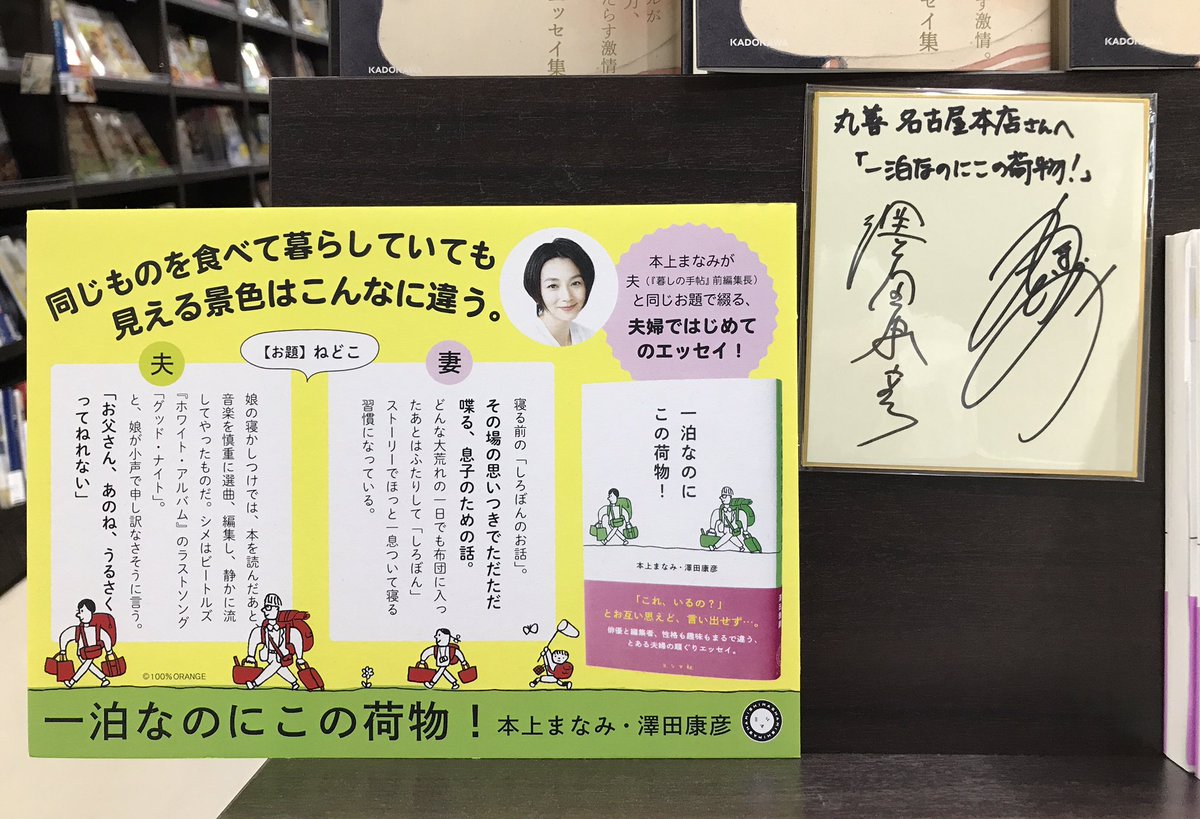 KADOKAWA
エッセイ集
たらす激情。
エッセイ集
KADOKAWA
らす激情。
エッセイ集
KADOKAWA
丸善 名古屋本店さんへ
「一泊なのにこの荷物!」
同じものを食べて暮らしていても
見える景色はこんなに違う。
本上まなみが
夫(『暮しの手帖』前編集長)
と同じお題で綴る、
夫婦ではじめて
のエッセイ!
【お題】ねどこ
夫
娘の寝かしつけでは、本を読んだあと
音楽を慎重に選曲、編集し、静かに流
してやったものだ。シメはビートルズ
『ホワイト・アルバム』のラストソング
「グッド・ナイト」。
と、娘が小声で申し訳なさそうに言う。
「お父さん、あのね、うるさく
ってねれない」
妻
寝る前の「しろぽんのお話」。
その場の思いつきでただただ
喋る、息子のための話。
どんな大荒れの一日でも布団に入っ
たあとはふたりして「しろぽん」
ストーリーでほっと一息ついて寝る
習慣になっている。
一泊なのに
この荷物!
本上まなみ・澤田康彦
「これ、いるの?」
とお互い思えど、言い出せず…。
俳優と編集者、性格も趣味もまるで違う、
とある夫婦の順ぐりエッセイ。
ミシマ社
©100% ORANGE
一泊なのにこの荷物! 本上まなみ・澤田康彦